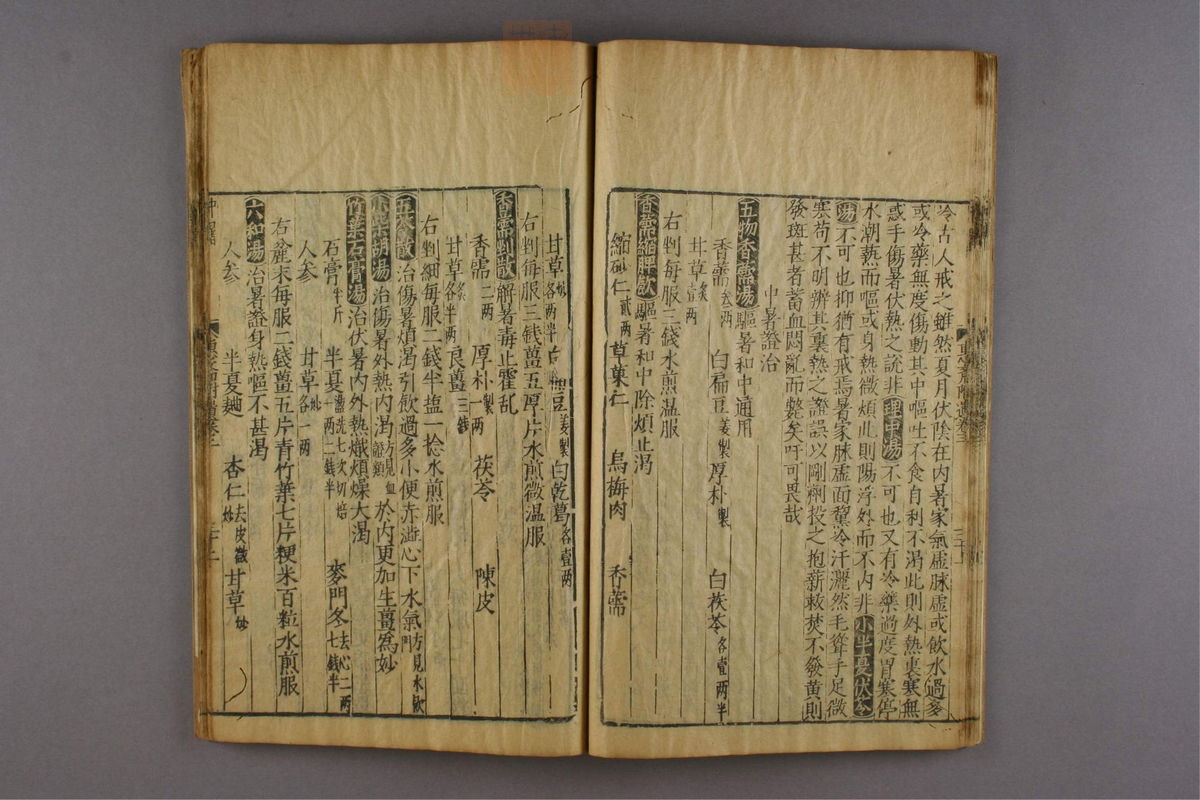 冷古人戒之雖然夏月伏陰在內暑家氣虛脉虛或飲水過多
或冷藥無度傷動其中嘔吐不食自利不渴此則外熱裏寒無
惑乎傷暑伏熱之說非理中湯不可也又有冷藥過度胃寒停
水潮熱而嘔或身熱微煩此則陽浮外而不內非小半夏茯苓
湯不可也抑猶有戒焉暑家脉虛面冷汗灑然毛聳手足微
寒苟不明辨其裏熱之證誤以剛劑投之抱薪救焚不發黃則
發斑甚者蓄血悶亂而斃矣吁可畏哉
中暑證治
五物香薷湯 驅暑和中通用
香薷 叁兩 白扁豆 姜製 厚朴 製 白茯苓 各壹兩半
甘草 炙壹兩
右判每服三錢水煎温服
香薷縮脾飲 驅暑和中除煩止渴
縮砂仁 貳兩 草菓仁 烏梅肉 香薷
甘草 炒各兩半 豆 姜製 白乾葛 各壹兩
右判每服三錢薑五厚片水煎微温服
香薷判散 解暑毒止霍亂
香薷 二兩 厚朴 製一兩 茯苓 陳皮
甘草 炙各半兩 良薑 三錢
右判細每服二錢半塩一捻水煎服
五苓散 治傷暑煩渴引飲過多小便赤澁心下水氣 方見水飲門
小柴胡湯 治傷暑外熱內渴 方見血證類 於內更加生薑爲妙
竹葉石膏湯 治伏暑內外熱熾煩燥大渴
石膏 半斤 半夏 湯洗七次切焙一兩二錢半 麥門冬 去心二兩七錢半
人參 甘草 炒各一兩
右麄末每服二錢薑五片青竹葉七片粳米百粒水煎服
六和湯 治暑證身熱嘔不甚渴
人參 半夏麯 杏仁 去皮微炒 甘草 炒